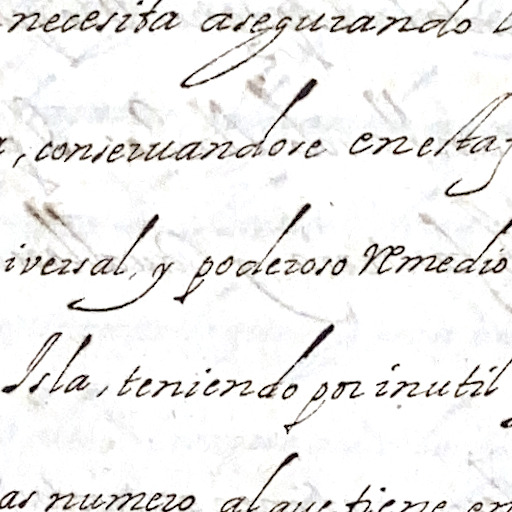 necesita asegurando
, conseruandose en esta
iversal, y poderoso Remedio
Isla, teniendo por inutil
as numero al que tiene en